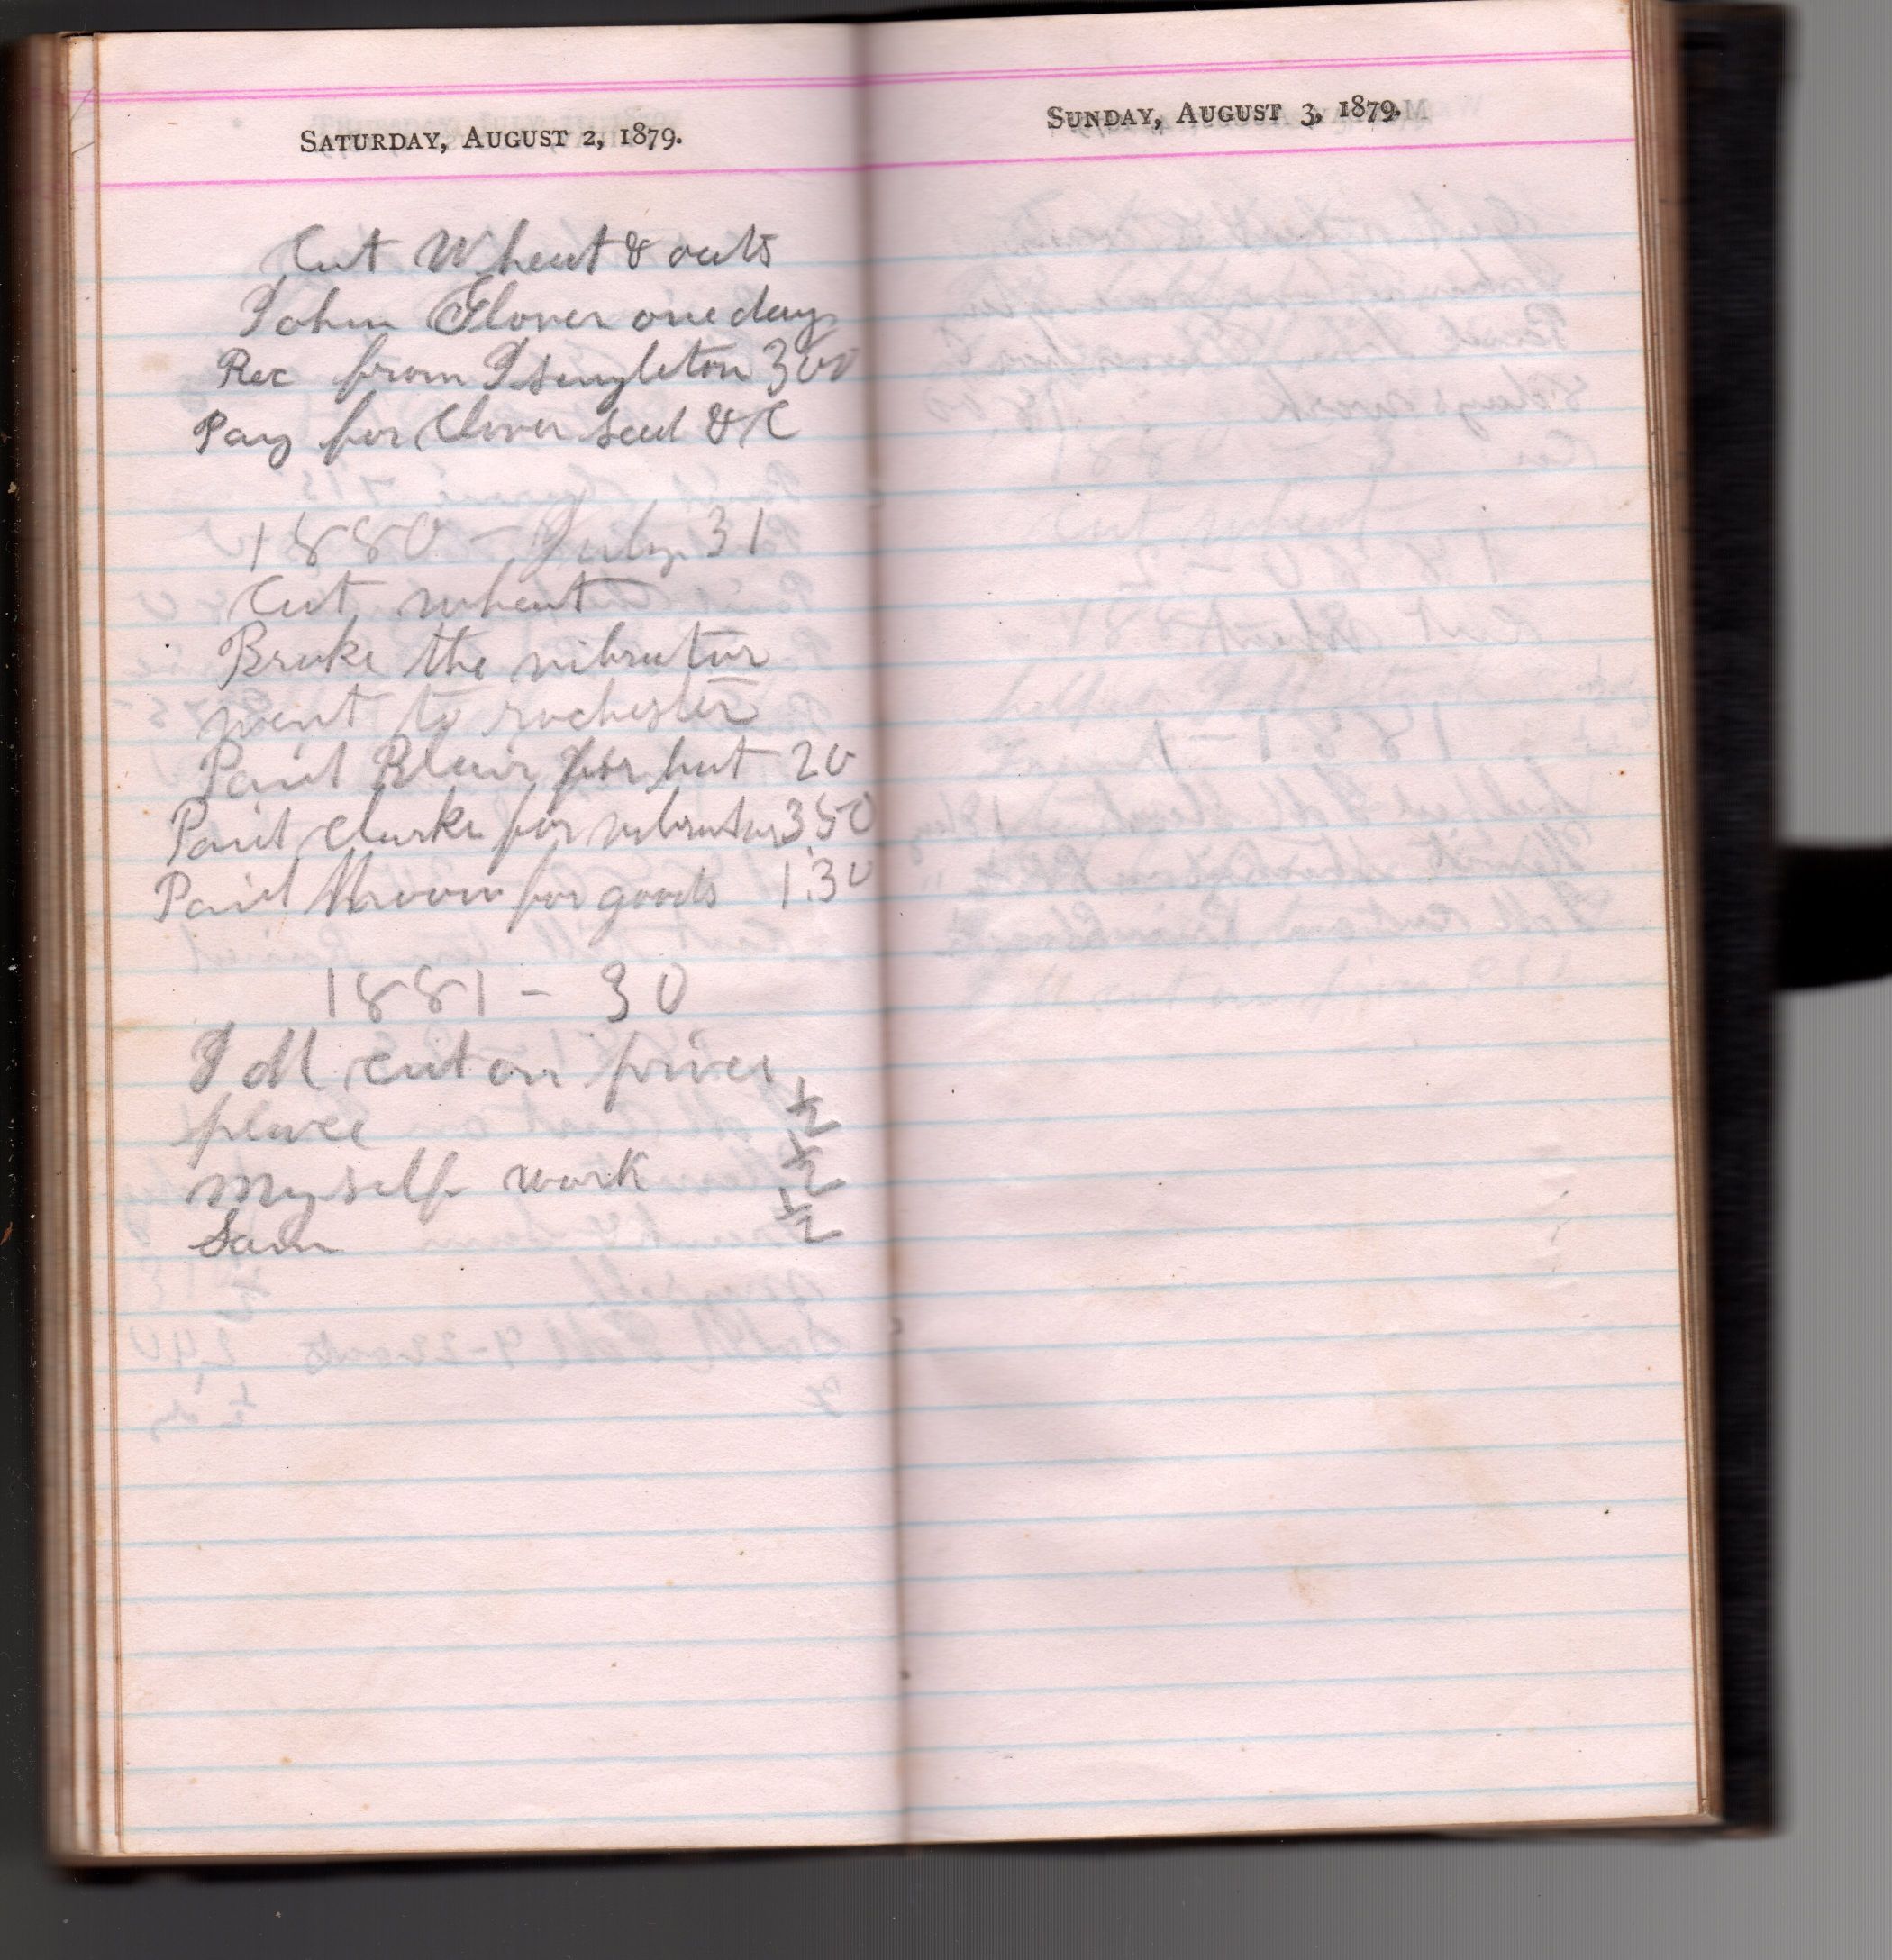 SATURDAY, AUGUST 2, 1879.
Cut Wheat & oats
John Glover one day
Rec from J Singleton 300
Pay for Clover seed &C
1880 - July 31
Cut wheat
Broke the vibrator
went to rochester
Paid Blair for hat 20
Paid Clarke for vibrator 3.50
Paid for goods 1.30
1881 - 30
J M cut on prices
place ½
myself work ½
Sam ½
SUNDAY, AUGUST 3, 1879.